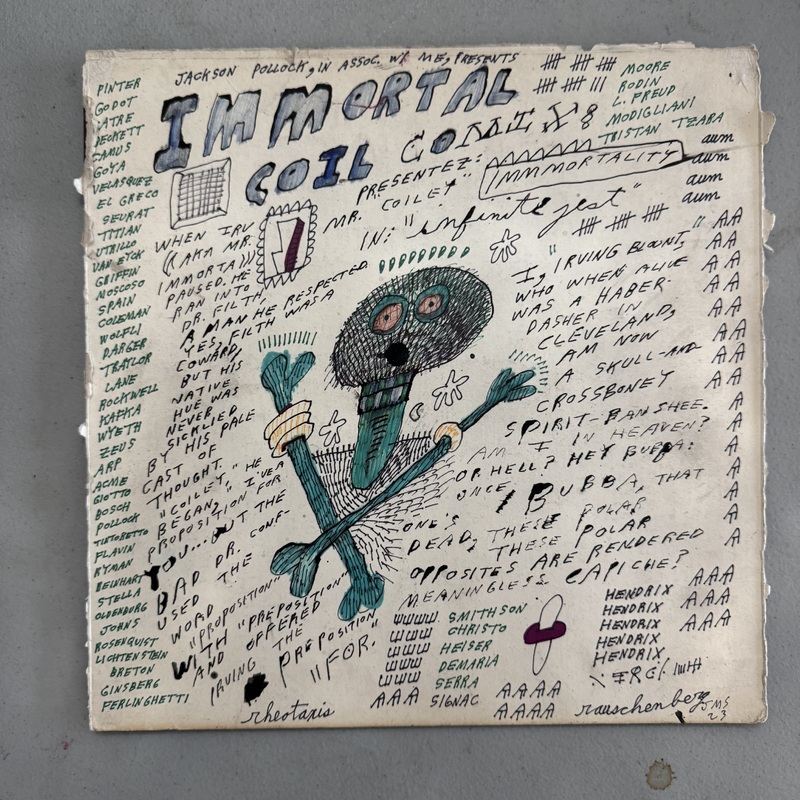 JACKSON POLLOCK, IN ASSOC. W/ ME, PRESENTS
IMMORTAL
COIL COMIX
PRESENTEZ:
IMMMORTALITY
MR. COILEY
IN: "infinite jest"
PINTER
GODOT
DECKETT
CAMUS
GOYA
VELASQUEZ
EL GRECO
SEURAT
TITIAN
UTRILLO
VAN EYCK
GRIFFIN
NOSCOSO
SPAIN
COLEMAN
WOLFLI
DARGER
TRAYLOR
LANE
ROCKWELL
KAFKA
WYETH
ZEUS
ARP
ACME
GIOTTO
BOSCH
POLLOCK
TINTORETTO
FLAVIN
RYMAN
REINHART
STELLA
OLDENBURG
JOHNS
ROSENQUIST
LICHTENSTEIN
BRETON
GINSBERG
FERLINGHETTI
MOORE
RODIN
L. FREUD
MODIGLIANI
TRISTAN TZARA
aum
aum
aum
aum
WHEN IRV
(AKA MR.
IMMORTAL)))
PAUSED. HE
RAN INTO
DR. FILTH,
A MAN HE RESPECTED.
YES, FILTH WAS A
COWARD,
BUT HIS
NATIVE
HUE WAS
NEVER
SICKLIED
BY HIS PALE
CAST OF
THOUGHT.
"COILEY," HE
BEGAN, "I'VE A
PROPOSITION FOR
YOU... BUT THE
BAD DR. CONF-
USED THE
WORD
"PROPOSITION"
WITH "PREPOSITION"
AND OFFERED
IRVING THE
PREPOSITION
"FOR."
"I, IRVING BLOUNT,"
WHO WHEN ALIVE
WAS A HABER-
DASHER IN
CLEVELAND,
AM NOW
A SKULL-AND-
CROSSBONEY
SPIRIT-BANSHEE.
AM I IN HEAVEN?
OR HELL? HEY BUBBA:
ONCE BUBBA, THAT
ONE'S
DEAD, THESE POLAR
THESE POLAR
OPPOSITES ARE RENDERED
MEANINGLESS CAPICHE?
AA
AA
AA
AA
AA
AA
AA
AA
A
A
A
A
A
A
A
WWW
WWW
WWW
WWW
WWW
AAA
SMITHSON
CHRISTO
HEISER
DEMARIA
SERRA
SIGNAC
AAAA
AAAA
HENDRIX
HENDRIX
HENDRIX
HENDRIX
HENDRIX
AAA
AAA
AAA
rheotaxis
rauschenberg
JMS
23